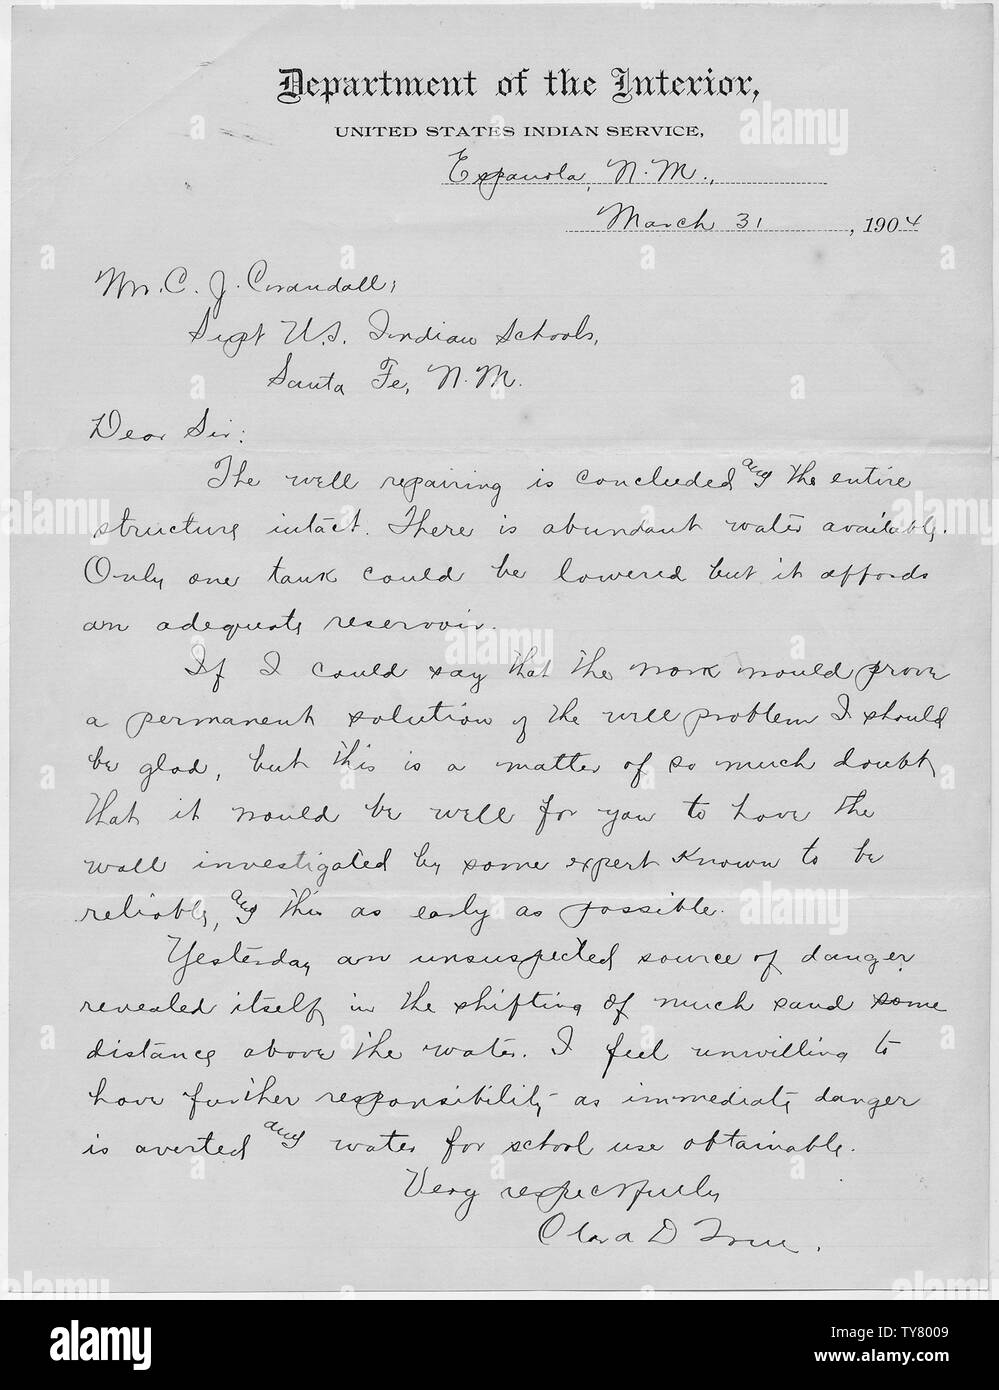 Department of the Interior,
UNITED STATES INDIAN SERVICE,
Espanola, N.M.,
March 31, 1904
Mr. C. J. Crandall,
Supt U.S. Indian Schools,
Santa Fe, N.M.
Dear Sir:
The well repairing is concluded and the entire
structure intact. There is abundant water available.
Only one tank could be lowered but it affords
an adequate reservoir.
If I could say that the work would prove
a permanent solution of the well problem I should
be glad, but this is a matter of so much doubt
that it would be well for you to have the
well investigated by some expert known to be
reliable, and this as early as possible.
Yesterday an unsuspected source of danger
revealed itself in the shifting of much sand some
distance above the water. I feel unwilling to
have further responsibility as immediate danger
is averted and water for school use obtainable.
Very respectfully
Clara D True.
alamy
TY8009